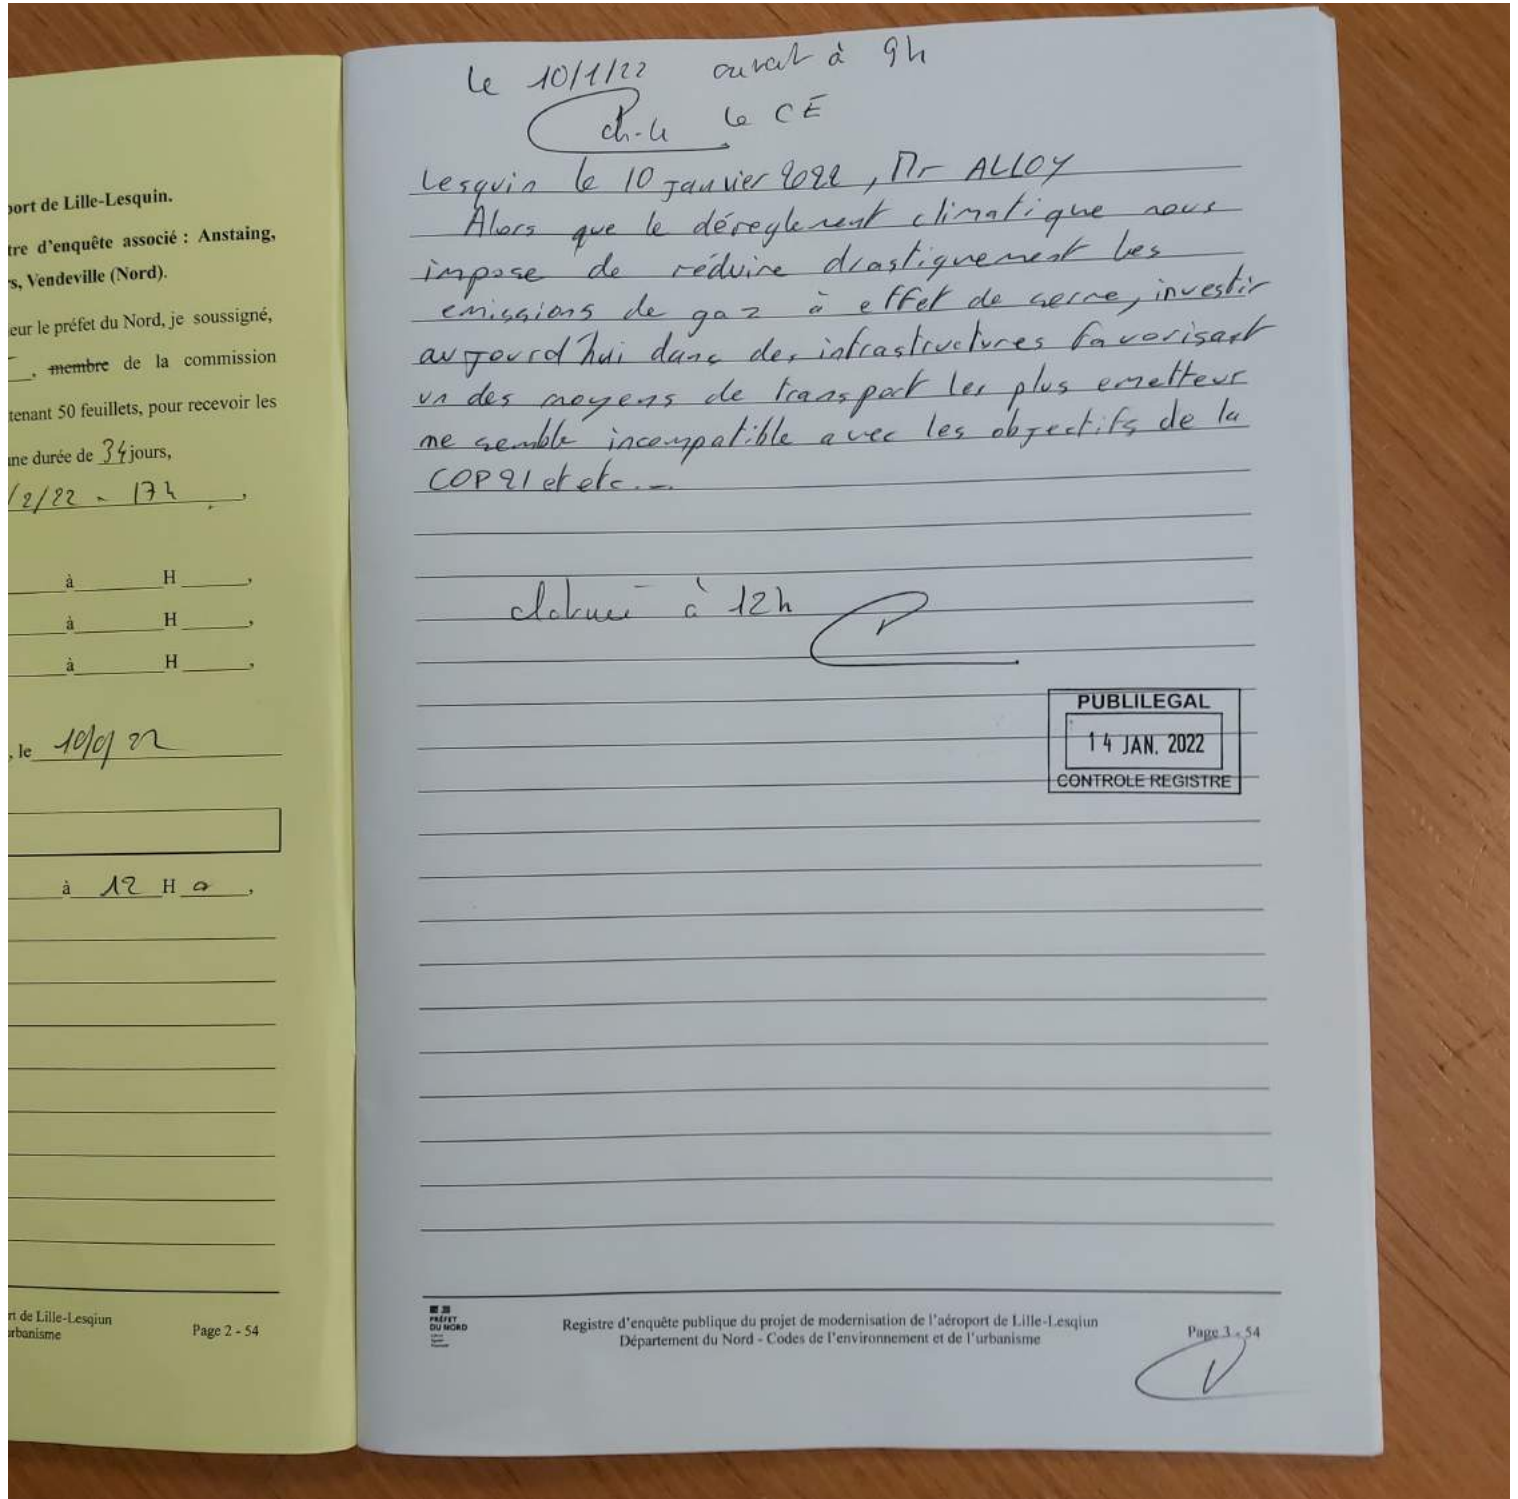 port de Lille-Lesquin.
tre d'enquête associé : Anstaing,
s, Vendeville (Nord).
eur le préfet du Nord, je soussigné,
, membre de la commission
tenant 50 feuillets, pour recevoir les
ne durée de 34 jours,
/2/22 - 17h,
à H ,
à H ,
à H ,
, le 10/01/22
à 12 H 0 ,
rt de Lille-Lesqiun
rbanisme
Page 2 - 54
Le 10/1/22 ouvert à 9h
le CE
Lesquin le 10 janvier 2022, Mr ALLOY
Alors que le déreglement climatique nous
impose de réduire drastiquement les
emissions de gaz à effet de serre, investir
aujourd'hui dans des infrastructures favorisant
un des moyens de transport les plus emetteur
me semble incompatible avec les objectifs de la
COP21 et etc...
cloturé à 12h
PUBLILEGAL
14 JAN. 2022
CONTROLE REGISTRE
PRÉFET
DU NORD
Registre d'enquête publique du projet de modernisation de l'aéroport de Lille-Lesqiun
Département du Nord - Codes de l'environnement et de l'urbanisme
Page 3 - 54